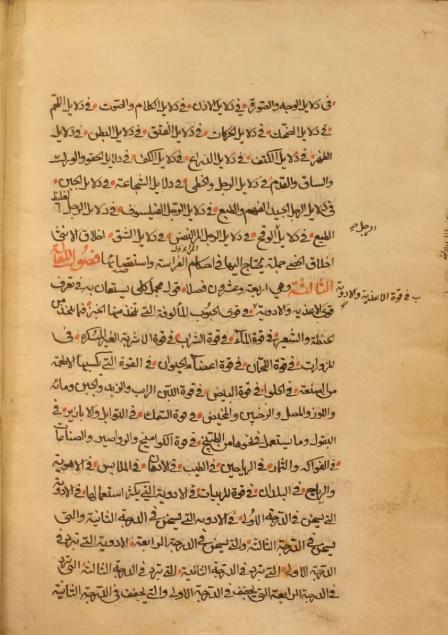 في دلايل الوجه والصورة في دلايل الاذن في دلايل الكلام والصوت في دلايل اللحم
في دلايل الضحك في دلايل الحركات في دلايل العنق في دلايل البطن في دلايل
الظهر في دلايل الكتف في دلايل الذراع في دلايل الكف في دلايل الحقو والورك
والساق والقدم في دلايل الرجل والخطى في دلايل الشجاعة في دلايل الجبن
في دلايل الرجل الجيد الفهم والطبع في دلايل الرجل الفيلسوف في دلايل الرجل الغليظ
الطبع في دلايل الوقح في دلايل الرجل المر النفس في دلايل الشبق اخلاق الانثى
الرجل
اخلاق الخصي جملة يحتاج اليها في احكام الفراسة واستعمالها فصول المقالة
الثالثة وهي اربعة وعشرون فصلا قول مجمل كلي يستعان به في تعرف
في قوة الاغذية والادوية
قوى الاغذية والادوية في قوى الحبوب المالوفة التي تتخذ منها الخبز فما يتخذ من
الحنطة والشعير في قوة الماء في قوة الشراب في قوة الاشربة الغير المسكرة في
المزورات في قوة اللحمان في قوة اعضاء الحيوان في القوة التي تكسبها الاطعمة
من الصنعة في الحلوا في قوة البيض في قوة اللبن الراب والزبد والجبن ومائه
واللوز والمصل والرخبين والمخيض في قوة السمك في التوابل والابازير في
البقول وما يستعمل في نحوها من الطبيخ في قوة الكواميخ والرواصير والصباغات
في الفواكه والثمار في الرياحين في الطيب في الادهان في الملابس في الاهوية
والرياح في البلدان في قوة المربيات في الادوية التي يكثر استعمالها في الادوية
التي تسخن في الدرجة الاولى في الادوية التي تسخن في الدرجة الثانية والتي
تسخن في الدرجة الثالثة والتي تسخن في الدرجة الرابعة الادوية التي تبرد في
الدرجة الاولى التي تبرد في الدرجة الثانية التي تبرد في الدرجة الثالثة التي تبرد
في الدرجة الرابعة التي تجفف في الدرجة الاولى والتي تجفف في الدرجة الثانية